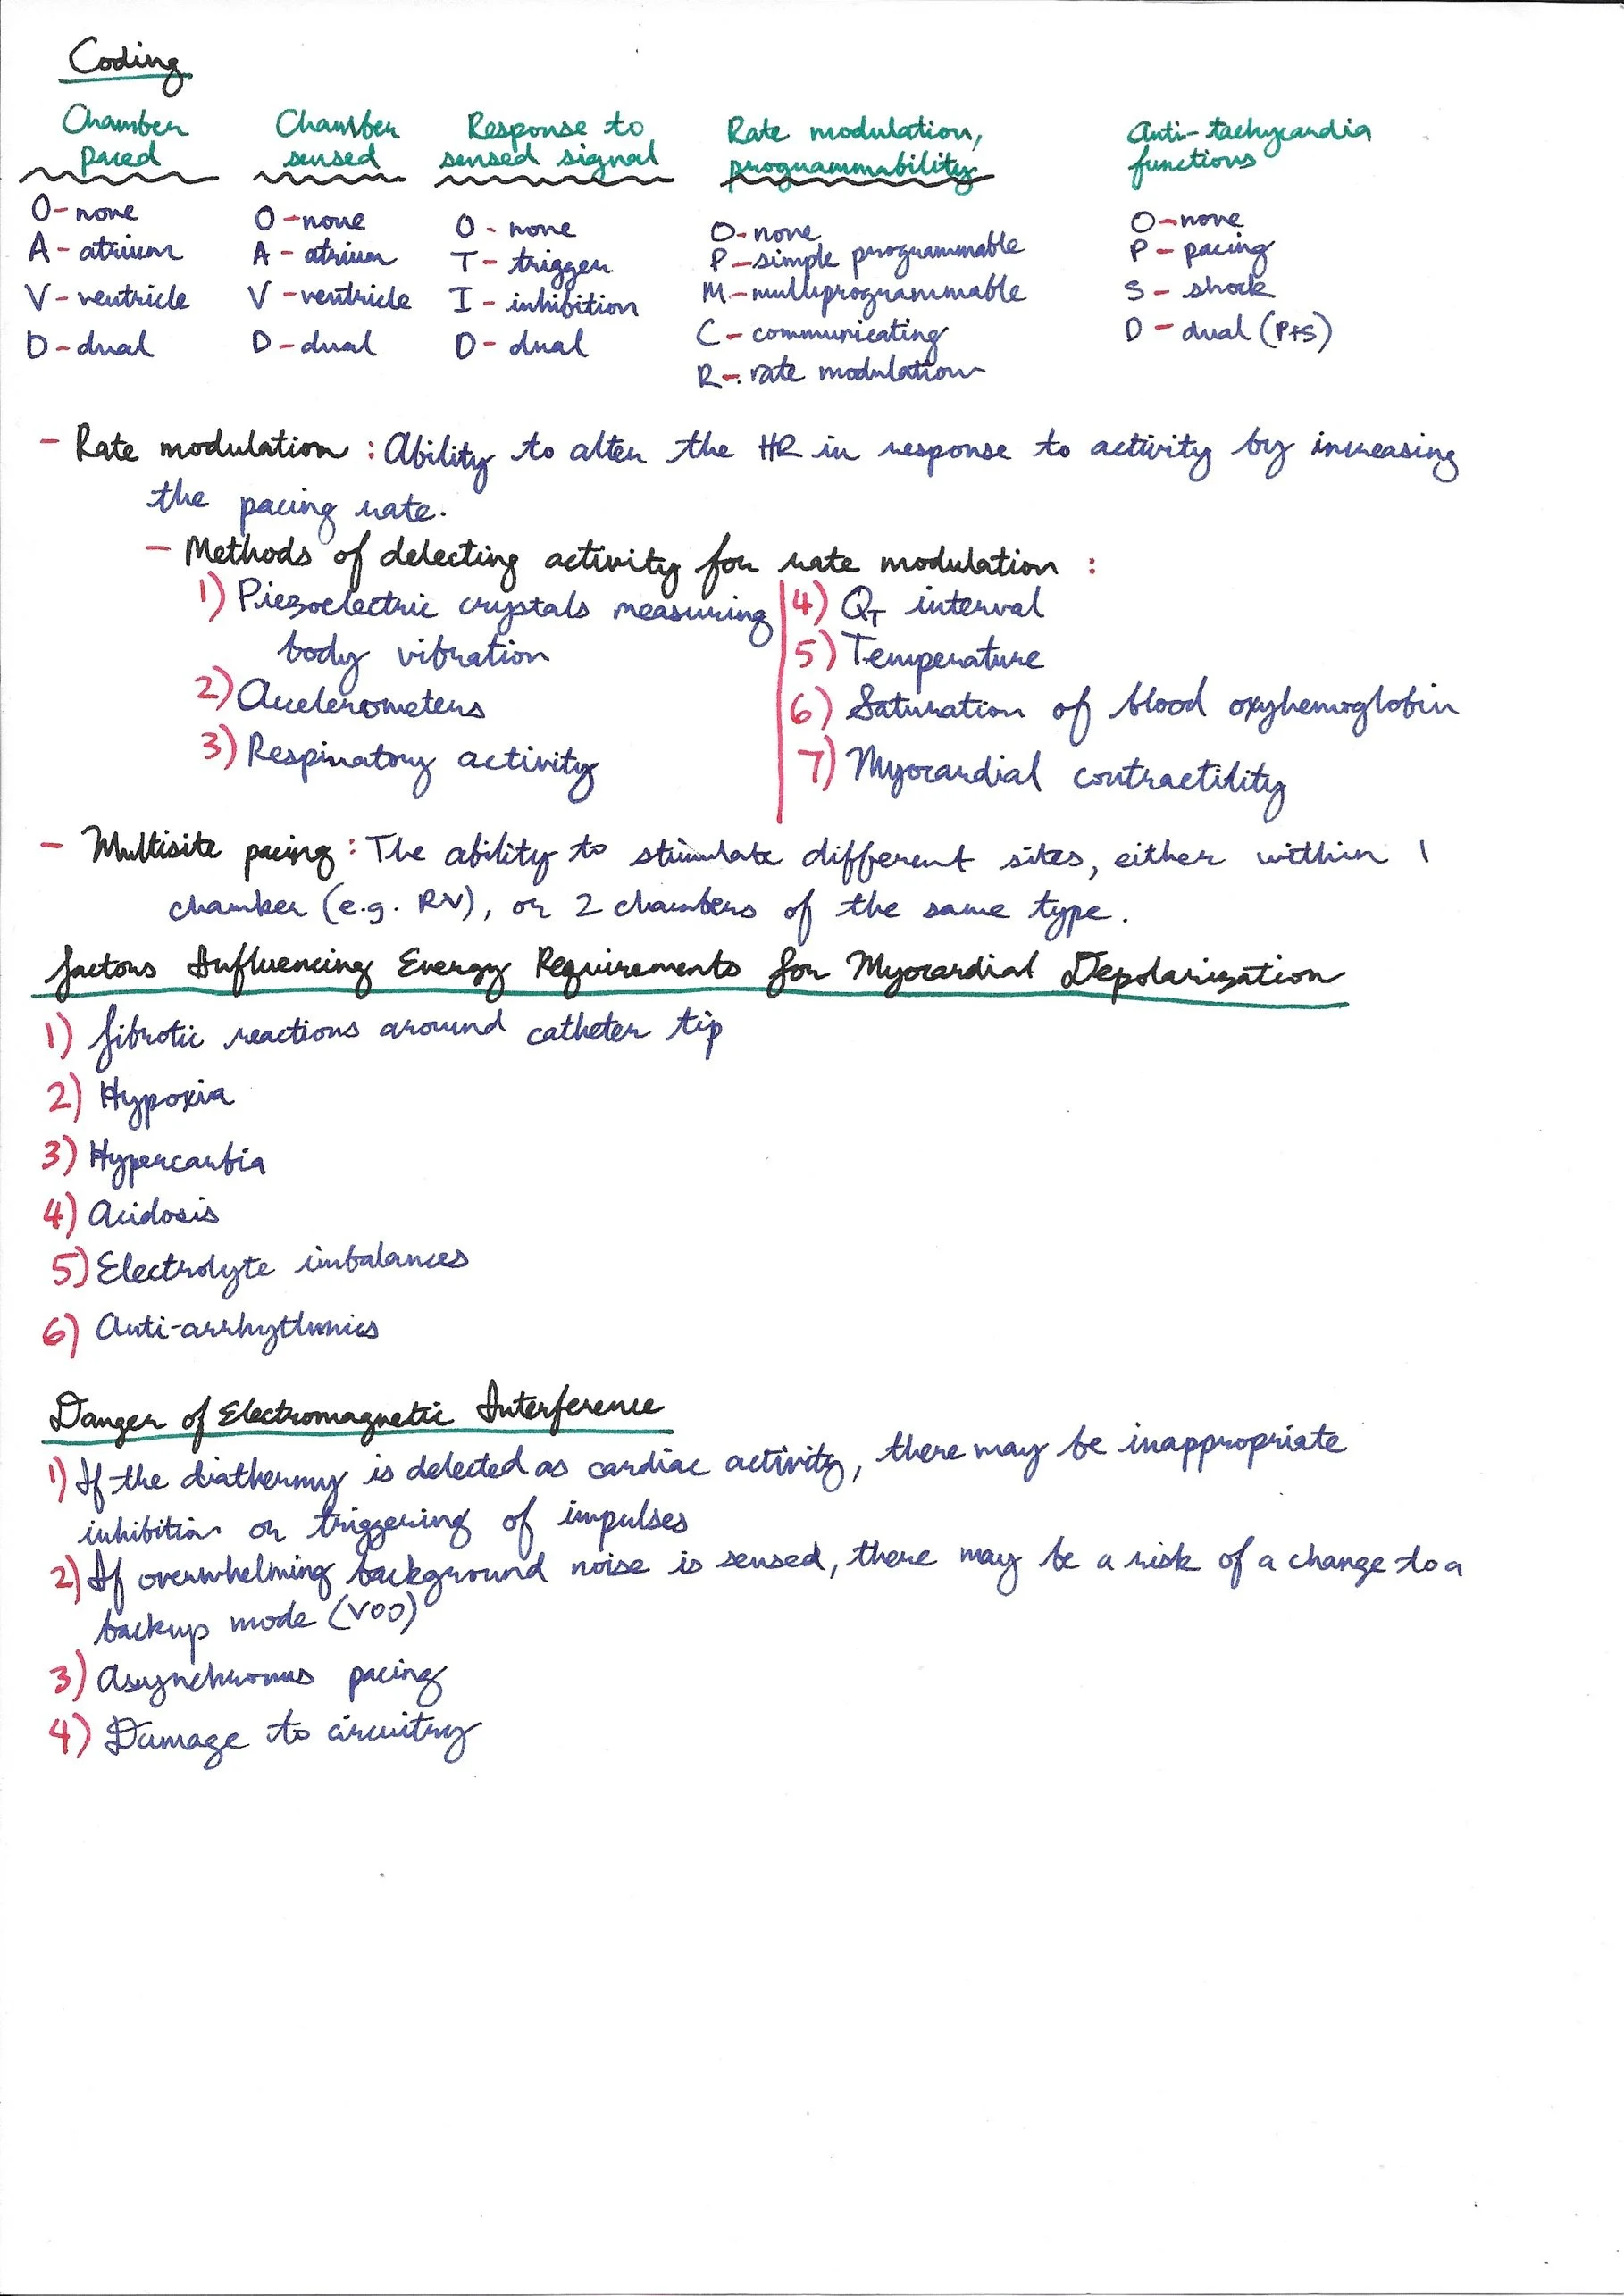 Coding
Chamber paced
Chamber sensed
Response to sensed signal
Rate modulation, programmability
Anti-tachycardia functions
O - none
A - atrium
V - ventricle
D - dual
O - none
A - atrium
V - ventricle
D - dual
O - none
T - trigger
I - inhibition
D - dual
O - none
P - simple programmable
M - multiprogrammable
C - communicating
R - rate modulation
O - none
P - pacing
S - shock
D - dual (P+S)
- Rate modulation : Ability to alter the HR in response to activity by increasing
the pacing rate.
- Methods of detecting activity for rate modulation :
1) Piezoelectric crystals measuring
body vibration
2) Accelerometers
3) Respiratory activity
4) QT interval
5) Temperature
6) Saturation of blood oxyhemoglobin
7) Myocardial contractility
- Multisite pacing : The ability to stimulate different sites, either within 1
chamber (e.g. RV), or 2 chambers of the same type.
Factors Influencing Energy Requirements for Myocardial Depolarization
1) Fibrotic reactions around catheter tip
2) Hypoxia
3) Hypercarbia
4) Acidosis
5) Electrolyte imbalances
6) Anti-arrhythmics
Danger of Electromagnetic Interference
1) If the diathermy is detected as cardiac activity, there may be inappropriate
inhibition or triggering of impulses
2) If overwhelming background noise is sensed, there may be a risk of a change to a
backup mode (VOO)
3) Asynchronus pacing
4) Damage to circuitry